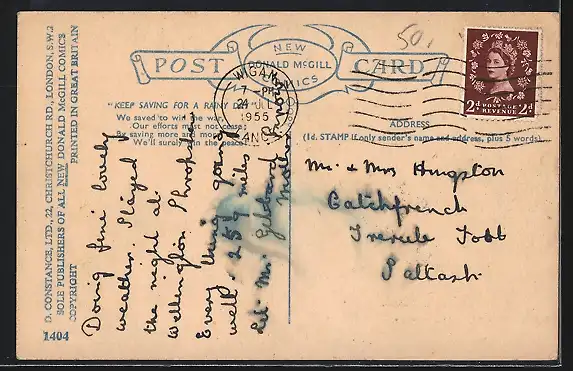 POST CARD
NEW
DONALD McGILL
COMICS
"KEEP SAVING FOR A RAINY DAY"
We saved to win the war,
Our efforts must not cease;
By saving more and more
We'll surely win the peace.
D. CONSTANCE, LTD., 22, CHRISTCHURCH RD., LONDON, S.W.2
SOLE PUBLISHERS OF ALL NEW DONALD McGILL COMICS
COPYRIGHT PRINTED IN GREAT BRITAIN
1404
WIGAN
7 - PM
24 JLY
1955
LANCS
501
2d POSTAGE REVENUE 2d
ADDRESS
(1d. STAMP if only sender's name and address, plus 5 words)
Doing fine lovely
weather. Stayed
the night at
Wellington Shropshire
Every thing going
well. 259 miles
Mr.
Mother
Mr & Mrs Hingston
Catchfrench
Trerule Foot